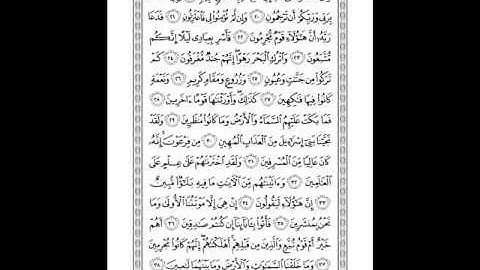 بِرَبِّى وَرَبِّكُمْ أَن تَرْجُمُونِ ٢٠ وَإِن لَّمْ تُؤْمِنُوا۟ لِى فَٱعْتَزِلُونِ ٢١ فَدَعَا
رَبَّهُۥٓ أَنَّ هَـٰٓؤُلَآءِ قَوْمٌ مُّجْرِمُونَ ٢٢ فَأَسْرِ بِعِبَادِى لَيْلًا إِنَّكُم
مُّتَّبَعُونَ ٢٣ وَٱتْرُكِ ٱلْبَحْرَ رَهْوًا ۖ إِنَّهُمْ جُندٌ مُّغْرَقُونَ ٢٤ كَمْ
تَرَكُوا۟ مِن جَنَّـٰتٍ وَعُيُونٍ ٢٥ وَزُرُوعٍ وَمَقَامٍ كَرِيمٍ ٢٦ وَنَعْمَةٍ
كَانُوا۟ فِيهَا فَـٰكِهِينَ ٢٧ كَذَٰلِكَ ۖ وَأَوْرَثْنَـٰهَا قَوْمًا ءَاخَرِينَ ٢٨
فَمَا بَكَتْ عَلَيْهِمُ ٱلسَّمَآءُ وَٱلْأَرْضُ وَمَا كَانُوا۟ مُنظَرِينَ ٢٩ وَلَقَدْ
نَجَّيْنَا بَنِىٓ إِسْرَٰٓءِيلَ مِنَ ٱلْعَذَابِ ٱلْمُهِينِ ٣٠ مِن فِرْعَوْنَ ۚ إِنَّهُۥ
كَانَ عَالِيًا مِّنَ ٱلْمُسْرِفِينَ ٣١ وَلَقَدِ ٱخْتَرْنَـٰهُمْ عَلَىٰ عِلْمٍ عَلَى
ٱلْعَـٰلَمِينَ ٣٢ وَءَاتَيْنَـٰهُم مِّنَ ٱلْـَٔايَـٰتِ مَا فِيهِ بَلَـٰٓؤٌا۟ مُّبِينٌ
٣٣ إِنَّ هَـٰٓؤُلَآءِ لَيَقُولُونَ ٣٤ إِنْ هِىَ إِلَّا مَوْتَتُنَا ٱلْأُولَىٰ وَمَا
نَحْنُ بِمُنشَرِينَ ٣٥ فَأْتُوا۟ بِـَٔابَآئِنَآ إِن كُنتُمْ صَـٰدِقِينَ ٣٦ أَهُمْ
خَيْرٌ أَمْ قَوْمُ تُبَّعٍ وَٱلَّذِينَ مِن قَبْلِهِمْ ۚ أَهْلَكْنَـٰهُمْ ۖ إِنَّهُمْ كَانُوا۟ مُجْرِمِينَ
٣٧ وَمَا خَلَقْنَا ٱلسَّمَـٰوَٰتِ وَٱلْأَرْضَ وَمَا بَيْنَهُمَا لَـٰعِبِينَ ٣٨